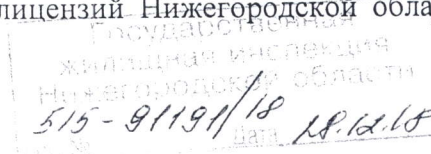 лицензий Нижегородской обла
Государственная
жилищная инспекция
Нижегородской области
515-91191/18 28.12.18
№ Дата